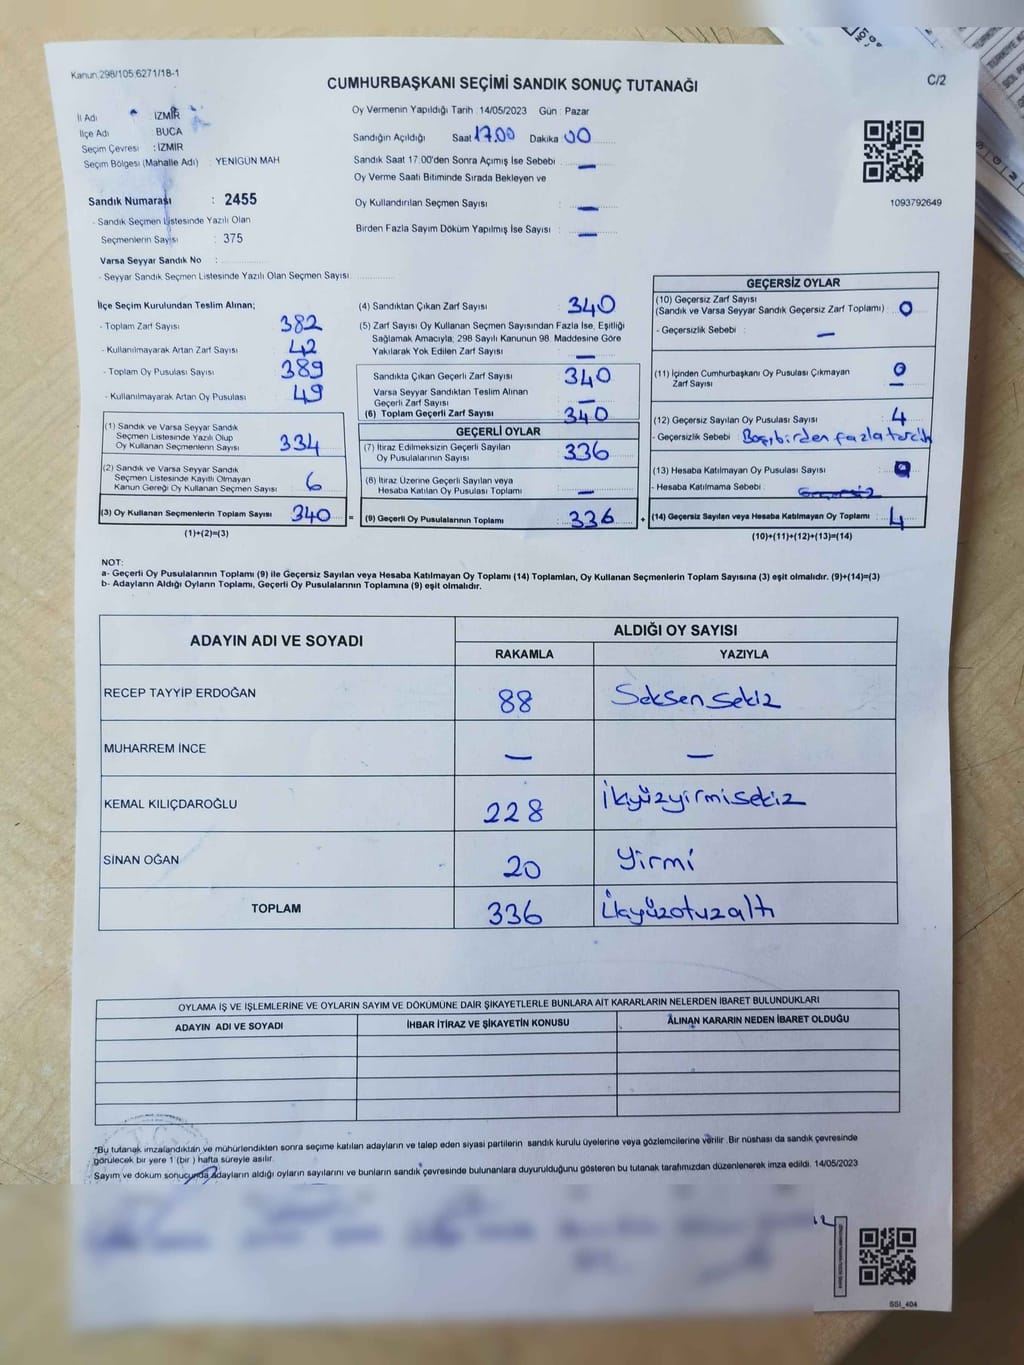 Kanun,298/105;6271/18-1
CUMHURBAŞKANI SEÇİMİ SANDIK SONUÇ TUTANAĞI
C/2
İl Adı İZMİR
İlçe Adı BUCA
Seçim Çevresi : İZMİR
Seçim Bölgesi (Mahalle Adı) : YENİGÜN MAH
Sandık Numarası : 2455
- Sandık Seçmen Listesinde Yazılı Olan
Seçmenlerin Sayısı : 375
Varsa Seyyar Sandık No :
- Seyyar Sandık Seçmen Listesinde Yazılı Olan Seçmen Sayısı:
Oy Vermenin Yapıldığı Tarih :14/05/2023 Gün : Pazar
Sandığın Açıldığı Saat 17.00 Dakika 00
Sandık Saat 17:00'den Sonra Açımış İse Sebebi : —
Oy Verme Saati Bitiminde Sırada Bekleyen ve
Oy Kullandırılan Seçmen Sayısı : —
Birden Fazla Sayım Döküm Yapılmış İse Sayısı : —
1093792649
İlçe Seçim Kurulundan Teslim Alınan;
- Toplam Zarf Sayısı 382
- Kullanılmayarak Artan Zarf Sayısı 42
- Toplam Oy Pusulası Sayısı 389
- Kullanılmayarak Artan Oy Pusulası 49
(1) Sandık ve Varsa Seyyar Sandık
Seçmen Listesinde Yazılı Olup
Oy Kullanan Seçmenlerin Sayısı 334
(2) Sandık ve Varsa Seyyar Sandık
Seçmen Listesinde Kayıtlı Olmayan
Kanun Gereği Oy Kullanan Seçmen Sayısı 6
(3) Oy Kullanan Seçmenlerin Toplam Sayısı 340 =
(1)+(2)=(3)
(4) Sandıktan Çıkan Zarf Sayısı : 340
(5) Zarf Sayısı Oy Kullanan Seçmen Sayısından Fazla İse, Eşitliği
Sağlamak Amacıyla; 298 Sayılı Kanunun 98. Maddesine Göre
Yakılarak Yok Edilen Zarf Sayısı : —
Sandıkta Çıkan Geçerli Zarf Sayısı : 340
Varsa Seyyar Sandıktan Teslim Alınan
Geçerli Zarf Sayısı : —
(6) Toplam Geçerli Zarf Sayısı : 340
GEÇERLİ OYLAR
(7) İtiraz Edilmeksizin Geçerli Sayılan
Oy Pusulalarının Sayısı : 336
(8) İtiraz Üzerine Geçerli Sayılan veya
Hesaba Katılan Oy Pusulası Toplamı : —
(9) Geçerli Oy Pusulalarının Toplamı : 336 +
GEÇERSİZ OYLAR
(10) Geçersiz Zarf Sayısı
(Sandık ve Varsa Seyyar Sandık Geçersiz Zarf Toplamı) : 0
- Geçersizlik Sebebi : —
(11) İçinden Cumhurbaşkanı Oy Pusulası Çıkmayan
Zarf Sayısı : 0
(12) Geçersiz Sayılan Oy Pusulası Sayısı : 4
- Geçersizlik Sebebi : Boş, birden fazla tercih
(13) Hesaba Katılmayan Oy Pusulası Sayısı : 0
- Hesaba Katılmama Sebebi :
(14) Geçersiz Sayılan veya Hesaba Katılmayan Oy Toplamı : 4
(10)+(11)+(12)+(13)=(14)
NOT:
a- Geçerli Oy Pusulalarının Toplamı (9) ile Geçersiz Sayılan veya Hesaba Katılmayan Oy Toplamı (14) Toplamları, Oy Kullanan Seçmenlerin Toplam Sayısına (3) eşit olmalıdır. (9)+(14)=(3)
b- Adayların Aldığı Oyların Toplamı, Geçerli Oy Pusulalarının Toplamına (9) eşit olmalıdır.
ADAYIN ADI VE SOYADI ALDIĞI OY SAYISI
RAKAMLA YAZIYLA
RECEP TAYYİP ERDOĞAN 88 Seksen sekiz
MUHARREM İNCE — —
KEMAL KILIÇDAROĞLU 228 İkyüzyirmisekiz
SİNAN OĞAN 20 Yirmi
TOPLAM 336 İkyüzotuzaltı
OYLAMA İŞ VE İŞLEMLERİNE VE OYLARIN SAYIM VE DÖKÜMÜNE DAİR ŞİKAYETLERLE BUNLARA AİT KARARLARIN NELERDEN İBARET BULUNDUKLARI
ADAYIN ADI VE SOYADI İHBAR İTİRAZ VE ŞİKAYETİN KONUSU ALINAN KARARIN NEDEN İBARET OLDUĞU
*Bu tutanak imzalandıktan ve mühürlendikten sonra seçime katılan adayların ve talep eden siyasi partilerin sandık kurulu üyelerine veya gözlemcilerine verilir .Bir nüshası da sandık çevresinde
görülecek bir yere 1 (bir ) hafta süreyle asılır.
Sayım ve döküm sonucunda adayların aldığı oyların sayılarını ve bunların sandık çevresinde bulunanlara duyurulduğunu gösteren bu tutanak tarafımızdan düzenlenerek imza edildi. 14/05/2023
SSI_404